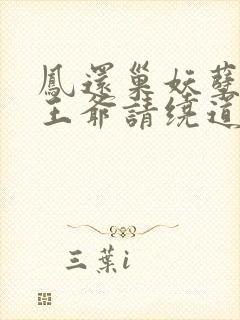 鳳還巢妖孽
王爺請绕道
三葉i